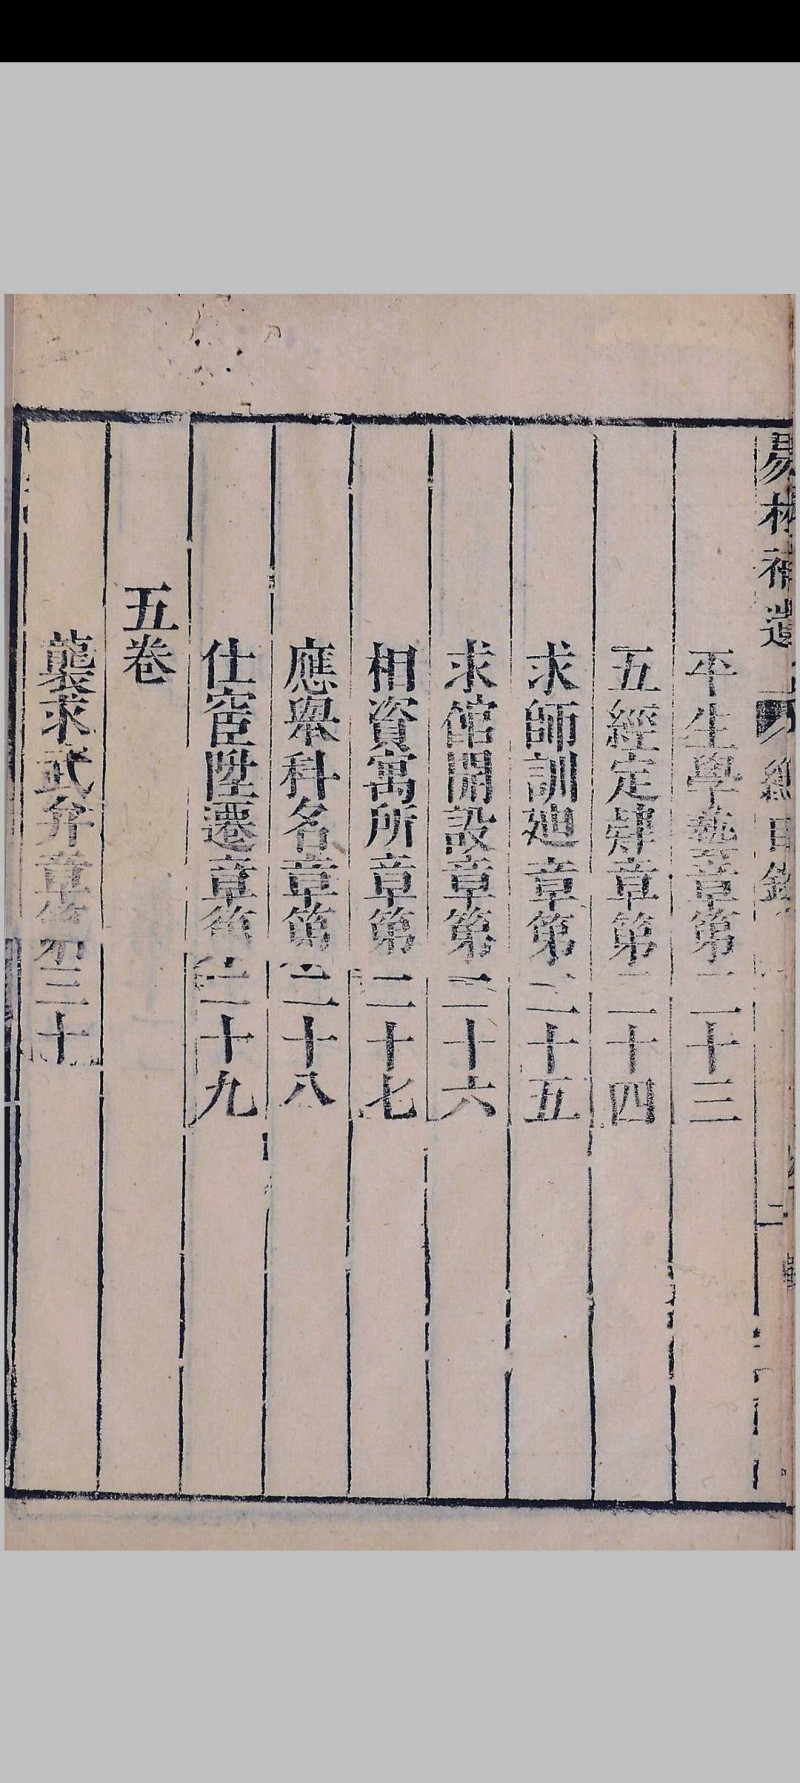 易林補遺 總目錄 二
平生學藝章第二十三
五經定肄章第二十四
求師訓廸章第二十五
求館開設章第二十六
相資寓所章第二十七
應舉科名章第二十八
仕宦陞遷章第二十九
五卷
襲求武弁章第三十